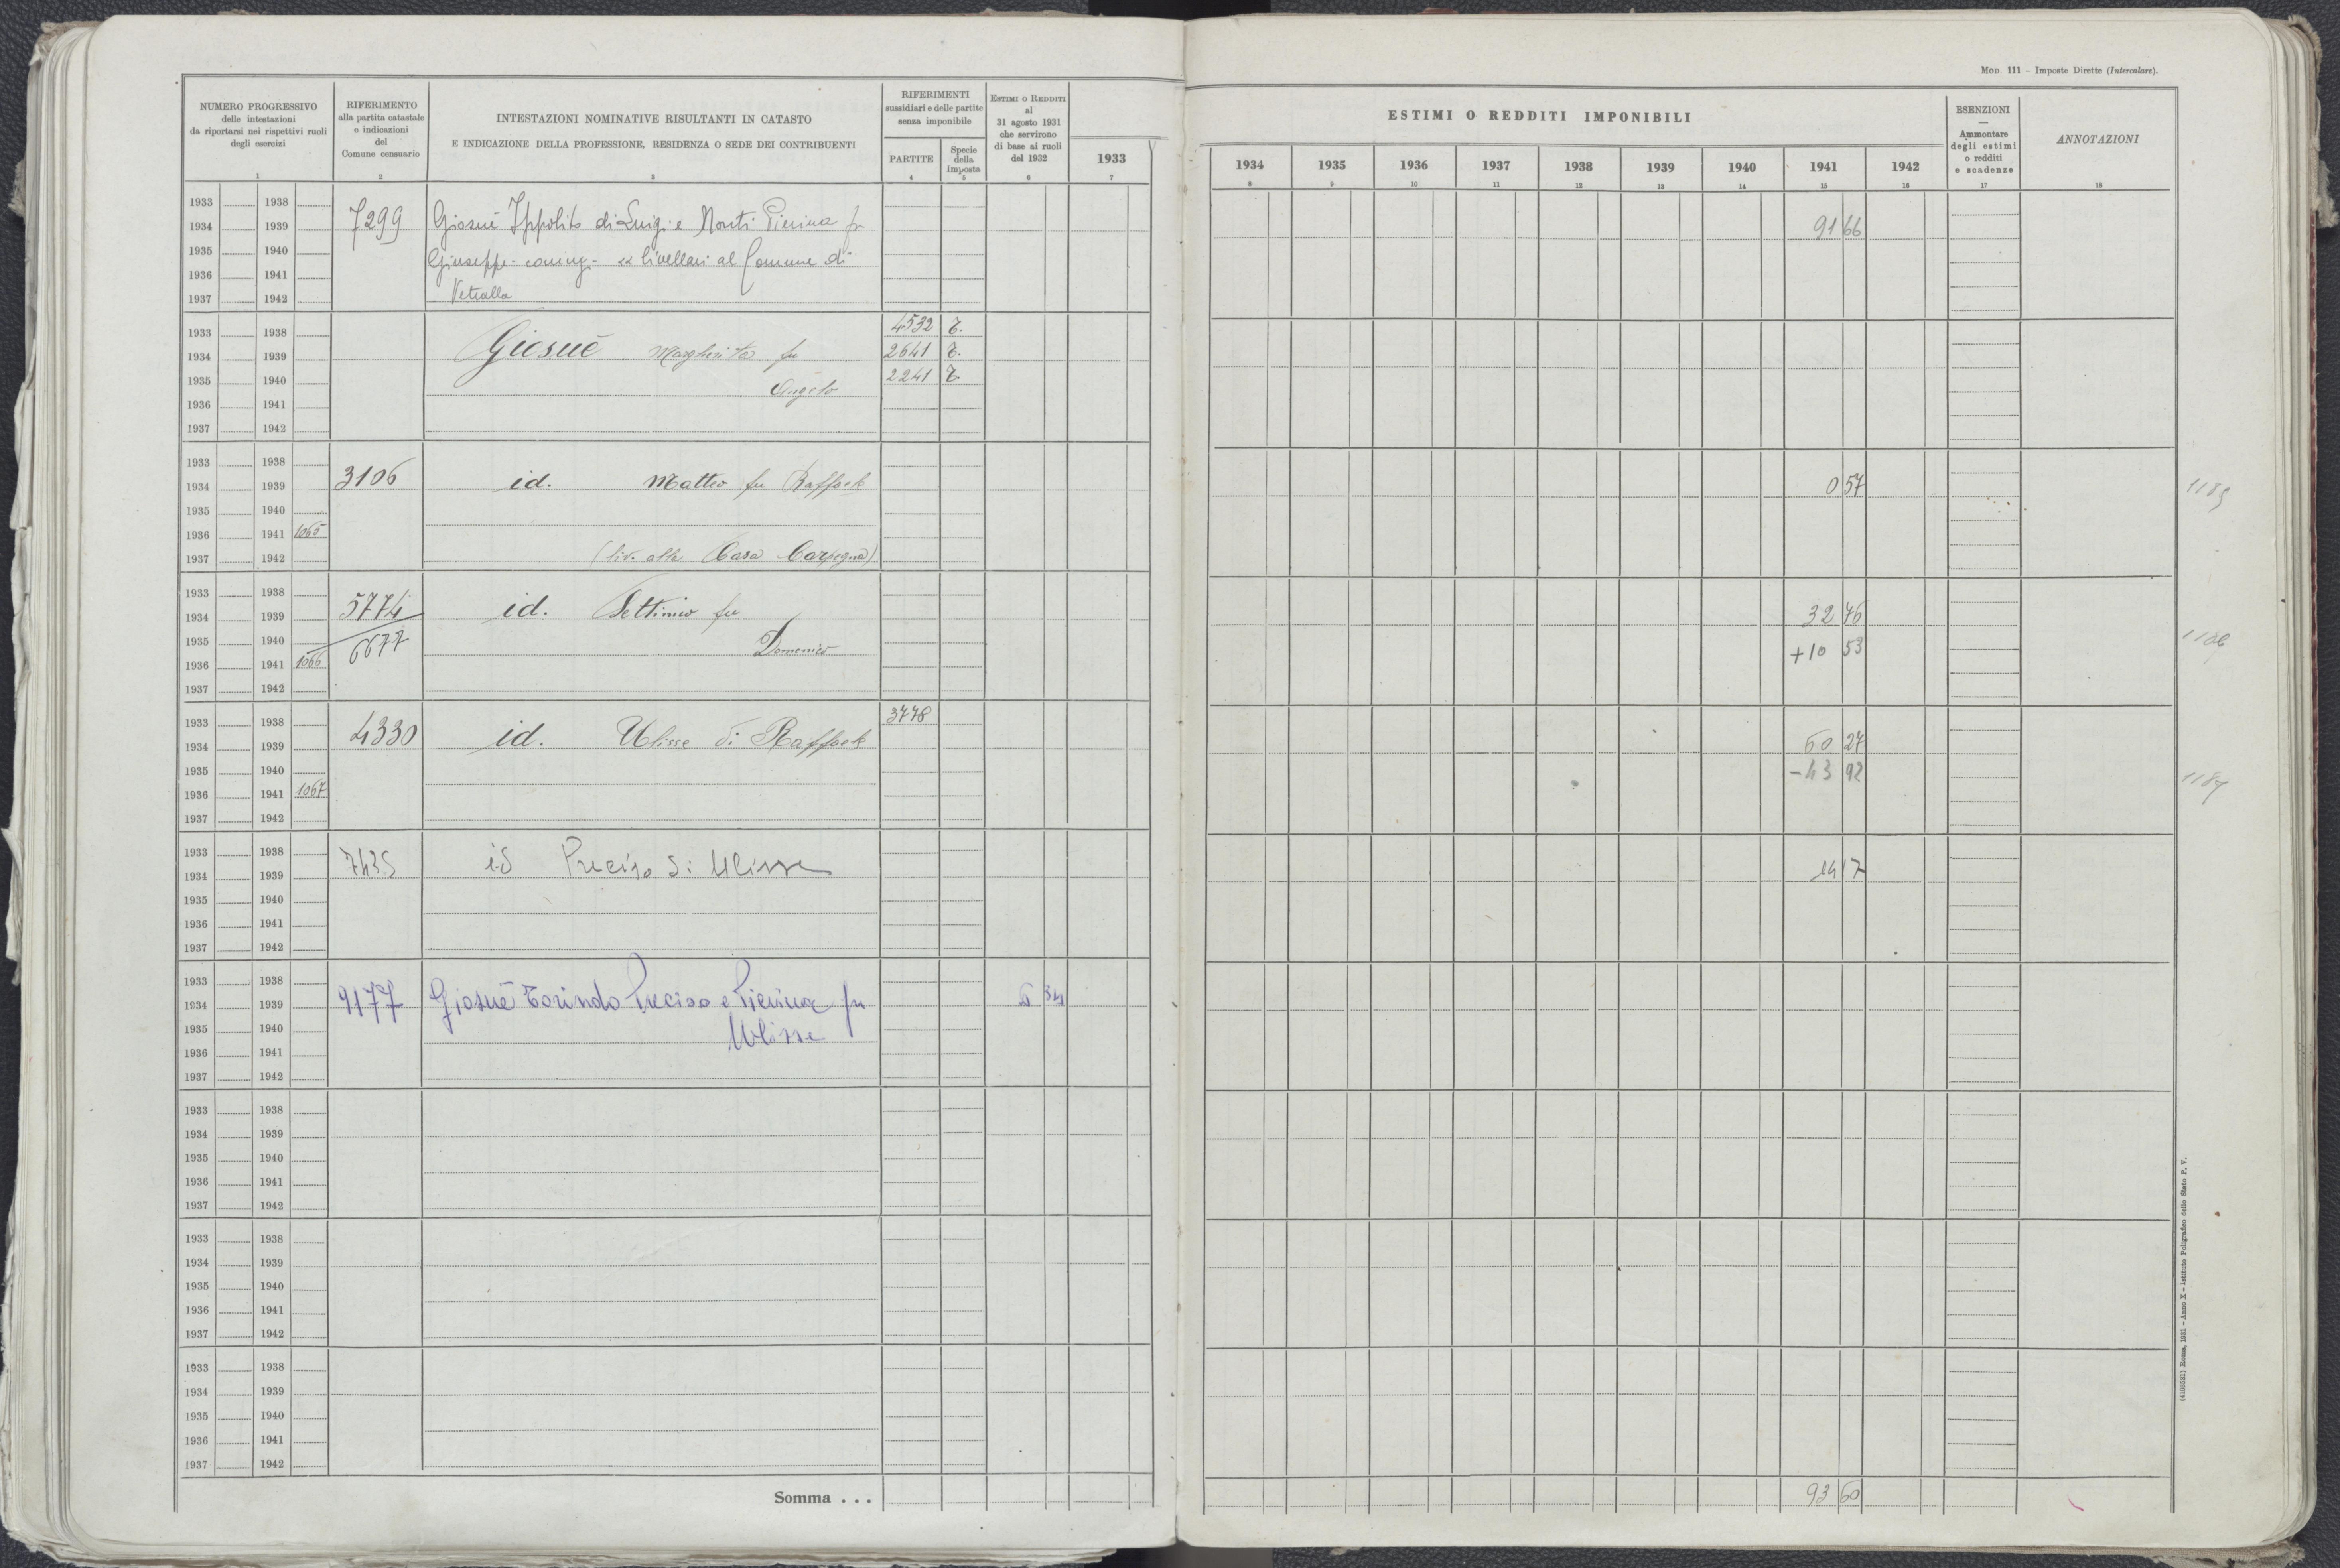 MOD. 111 – Imposte Dirette (Intercalare).
NUMERO PROGRESSIVO
delle intestazioni
da riportarsi nei rispettivi ruoli
degli esercizi
1
RIFERIMENTO
alla partita catastale
e indicazioni
del
Comune censuario
2
INTESTAZIONI NOMINATIVE RISULTANTI IN CATASTO
E INDICAZIONE DELLA PROFESSIONE, RESIDENZA O SEDE DEI CONTRIBUENTI
3
RIFERIMENTI
sussidiari e delle partite
senza imponibile
PARTITE
4
Specie
della
imposta
5
ESTIMI O REDDITI
al
31 agosto 1931
che servirono
di base ai ruoli
del 1932
6
1933
7
ESTIMI O REDDITI IMPONIBILI
1934 1935 1936 1937 1938 1939 1940 1941 1942
8 9 10 11 12 13 14 15 16
ESENZIONI
—
Ammontare
degli estimi
o redditi
e scadenze
17
ANNOTAZIONI
18
1933 1938
1934 1939 7299 Giosuè Ippolito di Luigi e Monti Pierina fu 91 66
1935 1940 Giuseppe - coniug - livellari al Comune di
1936 1941
1937 1942 Vetralla
1933 1938 4532 T.
1934 1939 Giosuè Margherita fu 2641 T.
1935 1940 Angelo 2241 T.
1936 1941
1937 1942
1933 1938
1934 1939 3106 id. Matteo fu Raffaele 0 57
1935 1940
1936 1941 1065
1937 1942 (liv. alla Casa Carpegna)
1933 1938
1934 1939 5774 id. Settimio fu 32 76
1935 1940 6677 Domenico + 10 53
1936 1941 1066
1937 1942
1933 1938 3778
1934 1939 4330 id. Ulisse di Raffaele 60 27
1935 1940 - 43 92
1936 1941 1067 1187
1937 1942
1933 1938
1934 1939 7435 id Preciso di Ulisse 14 17
1935 1940
1936 1941
1937 1942
1933 1938
1934 1939 9177 Giosuè Torindo Preciso e Pierina fu
1935 1940 Ulisse
1936 1941
1937 1942
1933 1938
1934 1939
1935 1940
1936 1941
1937 1942
1933 1938
1934 1939
1935 1940
1936 1941
1937 1942
1933 1938
1934 1939
1935 1940
1936 1941
1937 1942
Somma . . . 93 60
Roma, 1931 – Anno X – Istituto Poligrafico dello Stato P. V.